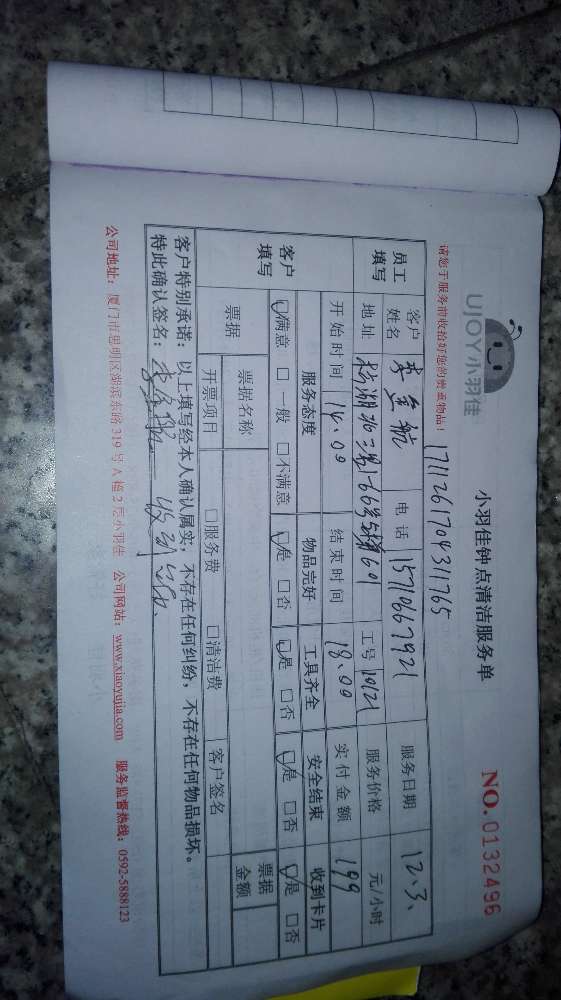 UJOY小羽佳
小羽佳钟点清洁服务单
NO.0132496
请您于服务前收拾好您的贵重物品!
171126170431765
员工填写
客户姓名 李金航 电话 15710667921 服务日期 12.3.
地址 工号 10121 服务价格 元/小时
开始时间 14.00 结束时间 18.00 实付金额 199
客户填写
服务态度 物品完好 工具齐全 安全结束 收到卡片
☑满意 □一般 □不满意 ☑是 □否 ☑是 □否 ☑是 □否 ☑是 □否
票据 票据名称 票据金额
开票项目 □服务费 □清洁费 客户签名
客户特别承诺:以上填写经本人确认属实,不存在任何纠纷,不存在任何物品损坏。
特此确认签名:
公司地址:厦门市思明区湖滨东路 319 号 A 幢 2 层小羽佳 公司网站:www.xiaoyujia.com 服务监督热线:0592-5888123